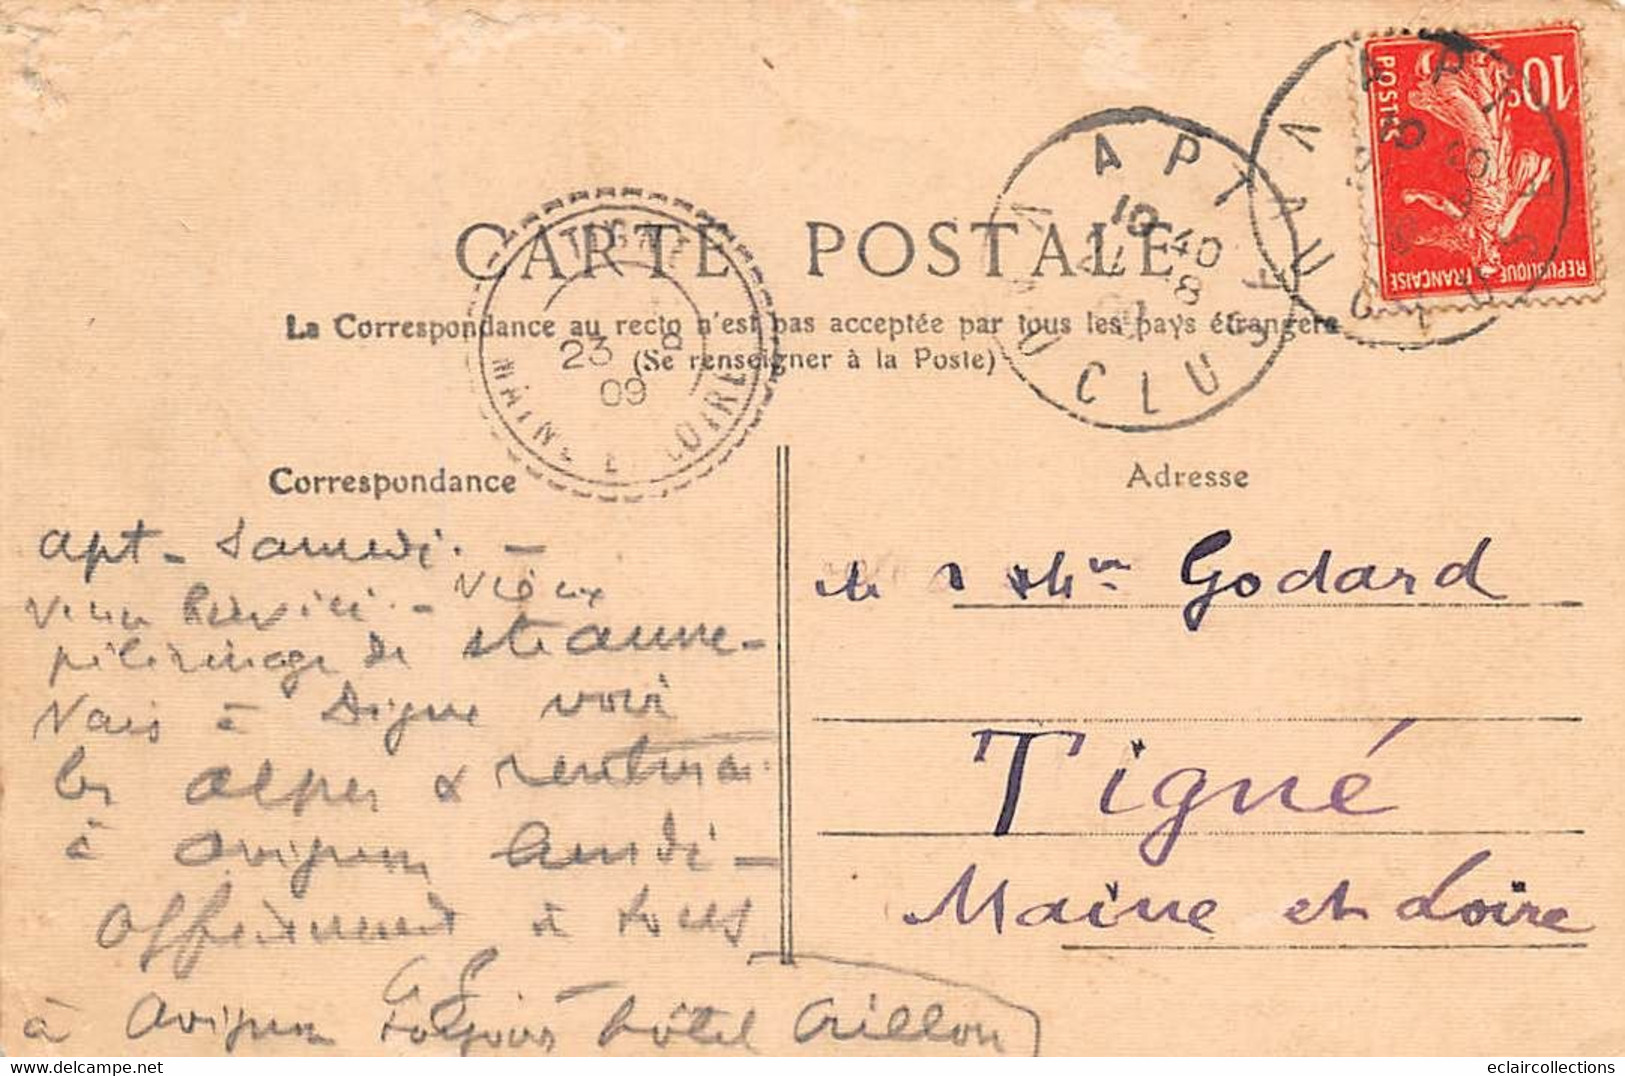 CARTE POSTALE
La Correspondance au recto n'est pas acceptée par tous les pays étrangers
(Se renseigner à la Poste)
TIGNÉ
23 8
09
MAINE ET LOIRE
APT
10 40
21 8
09
VAUCLUSE
APT
VAUCLUSE
10c
POSTES
REPUBLIQUE FRANÇAISE
Correspondance
Apt - Samedi. -
vieux
pélerinage de Ste Anne -
Vais à Digne voir
les Alpes & rentrerai
à Avignon Lundi -
Affectueusement à tous
à Avignon toujours hôtel Crillon
Adresse
Godard
Tigné
Maine et Loire
eclaircollections